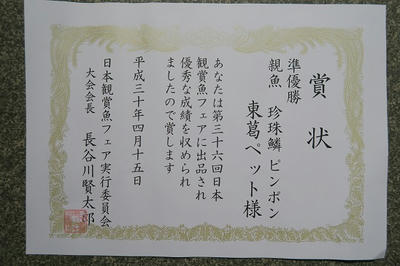 賞状
準優勝
親魚 珍珠鱗 ピンポン
東葛ペット様
あなたは第三十六回日本
観賞魚フェアに出品され
優秀な成績を収められ
ましたので賞します
平成三十年四月十五日
日本観賞魚フェア実行委員会
大会会長 長谷川賢太郎